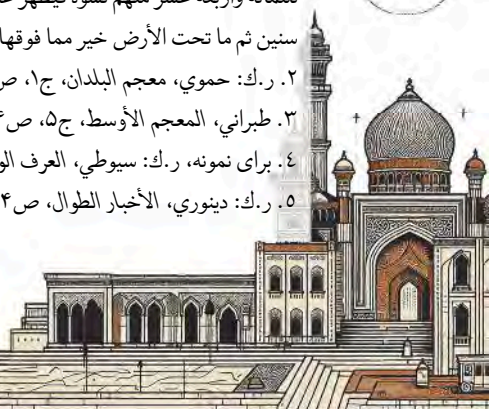 وأربعة عشر منهم نسوة فيظهر
سنين ثم ما تحت الأرض خير مما فوقها
۲. ر.ک: حموي، معجم البلدان، ج۱، ص
۳. طبراني، المعجم الأوسط، ج۵، ص
٤. برای نمونه، ر.ک: سيوطي، العرف
۵. ر.ک: دينوري، الأخبار الطوال، ص۴